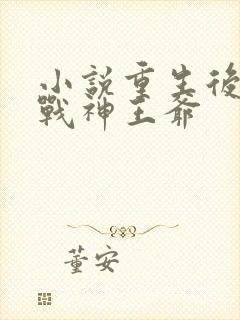 小說重生後
戰神王爺
董安